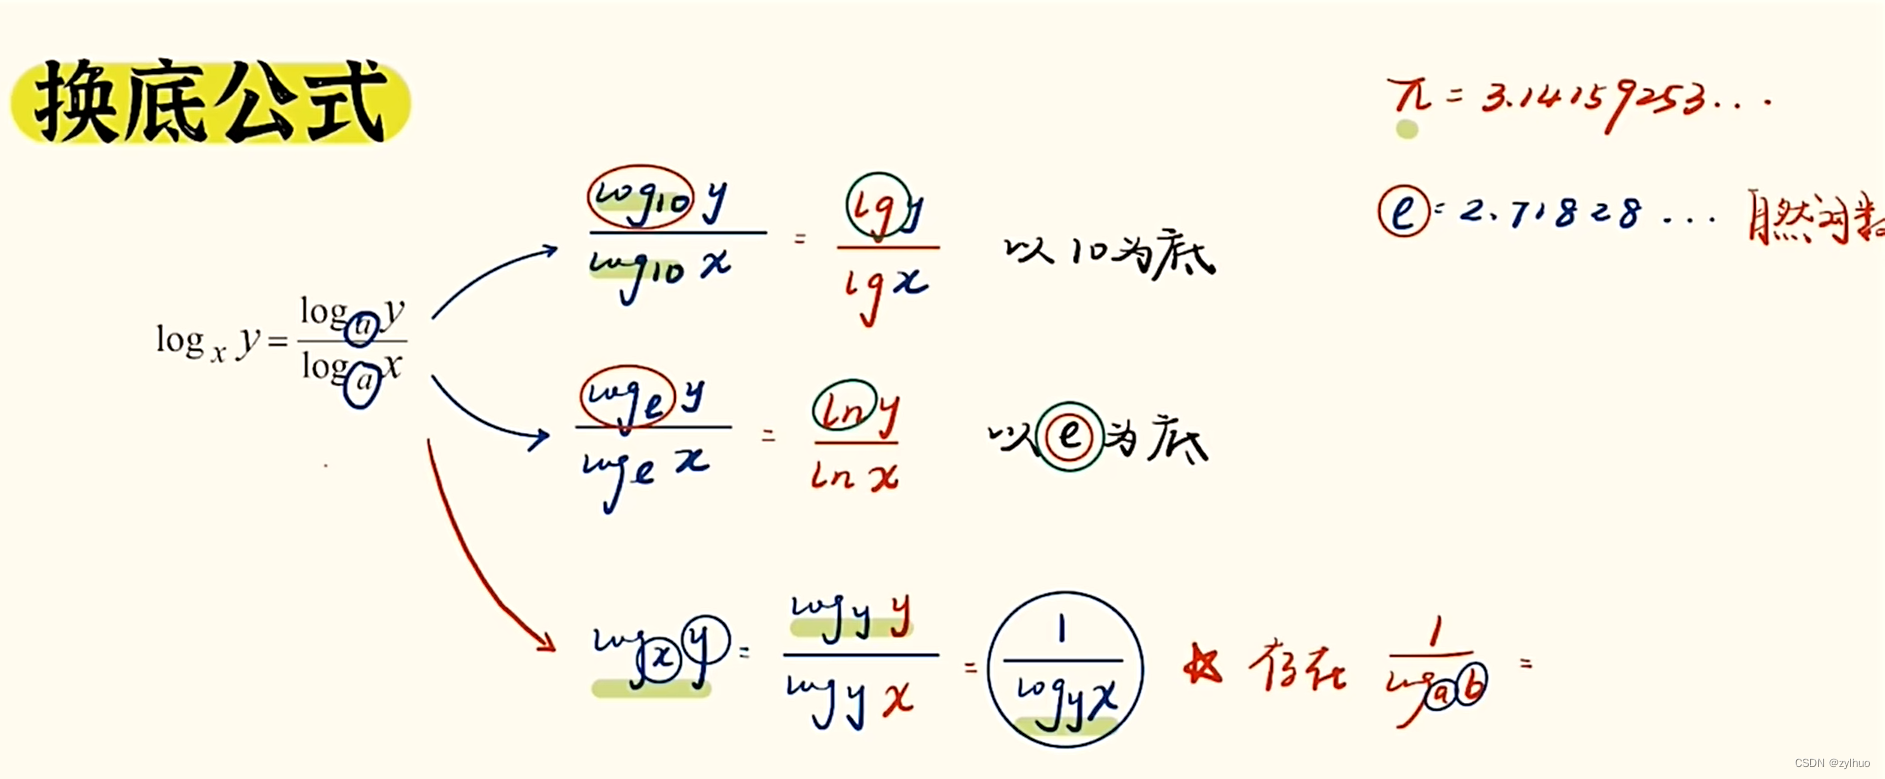 换底公式
π = 3.14159253...
e = 2.71828... 自然对数
log_x y = log_a y / log_a x
log_10 y / log_10 x = lg y / lg x 以10为底
log_e y / log_e x = ln y / ln x 以e为底
log_x y = log_y y / log_y x = 1 / log_y x ☆ 存在 1 / log_a b =
CSDN @zylhuo